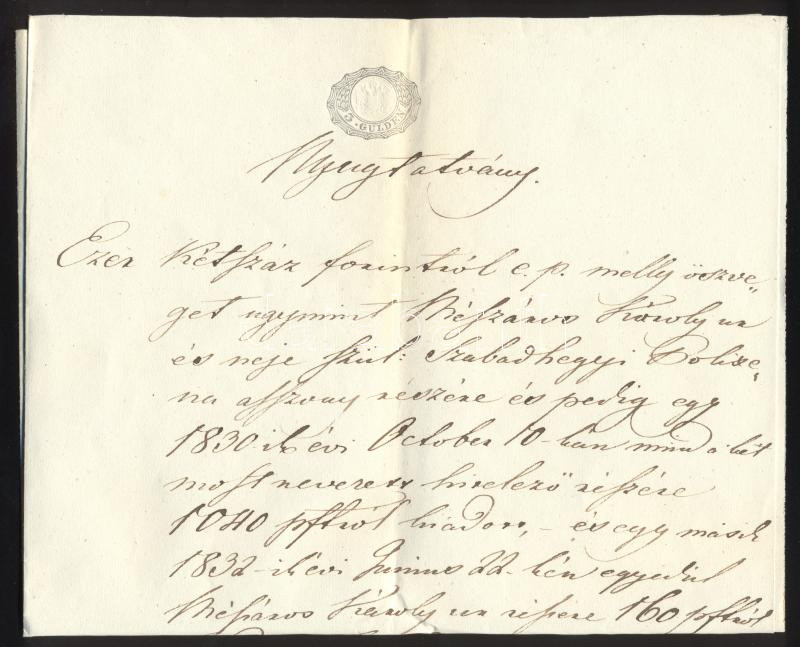 5. GULDEN
Nyugtatvány.
Ezer Kétszáz forintról e.p. melly öszve„
get ugymint Mészáros Károly ur
és neje szül: Szabadhegyi Polixe„
na asszony részére és pedig egy
1830-ik évi October 10-kén mind a két
most nevezett hitelező részére
1040 pftról kiadott, – és egy másik
1832-ik évi Junius 22-kén egyedül
Mészáros Károly ur részére 160 pftról